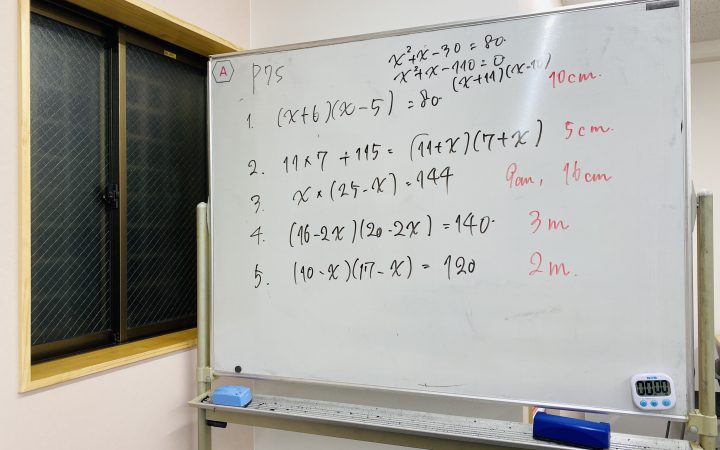 A
P75
x²+x-30=80
x²+x-110=0
(x+11)(x-10)
1. (x+6)(x-5)=80 10cm.
2. 11×7+115=(11+x)(7+x) 5cm.
3. x×(25-x)=144 9cm, 16cm
4. (16-2x)(20-2x)=140 3m
5. (10-x)(17-x)=120 2m.
00:00